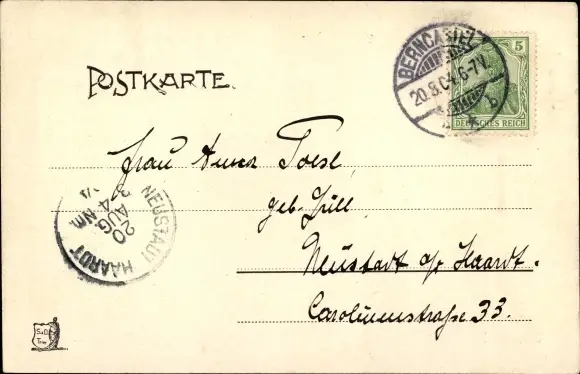 POSTKARTE.
BERNCASTEL
20.8.04. 6-7V.
b
5
DEUTSCHES REICH
Frau Anna Toesl
geb. Jüll
Neustadt a/Haardt.
Carolinenstraße 33.
NEUSTADT
20 AUG.
3-4 Nm
HAARDT